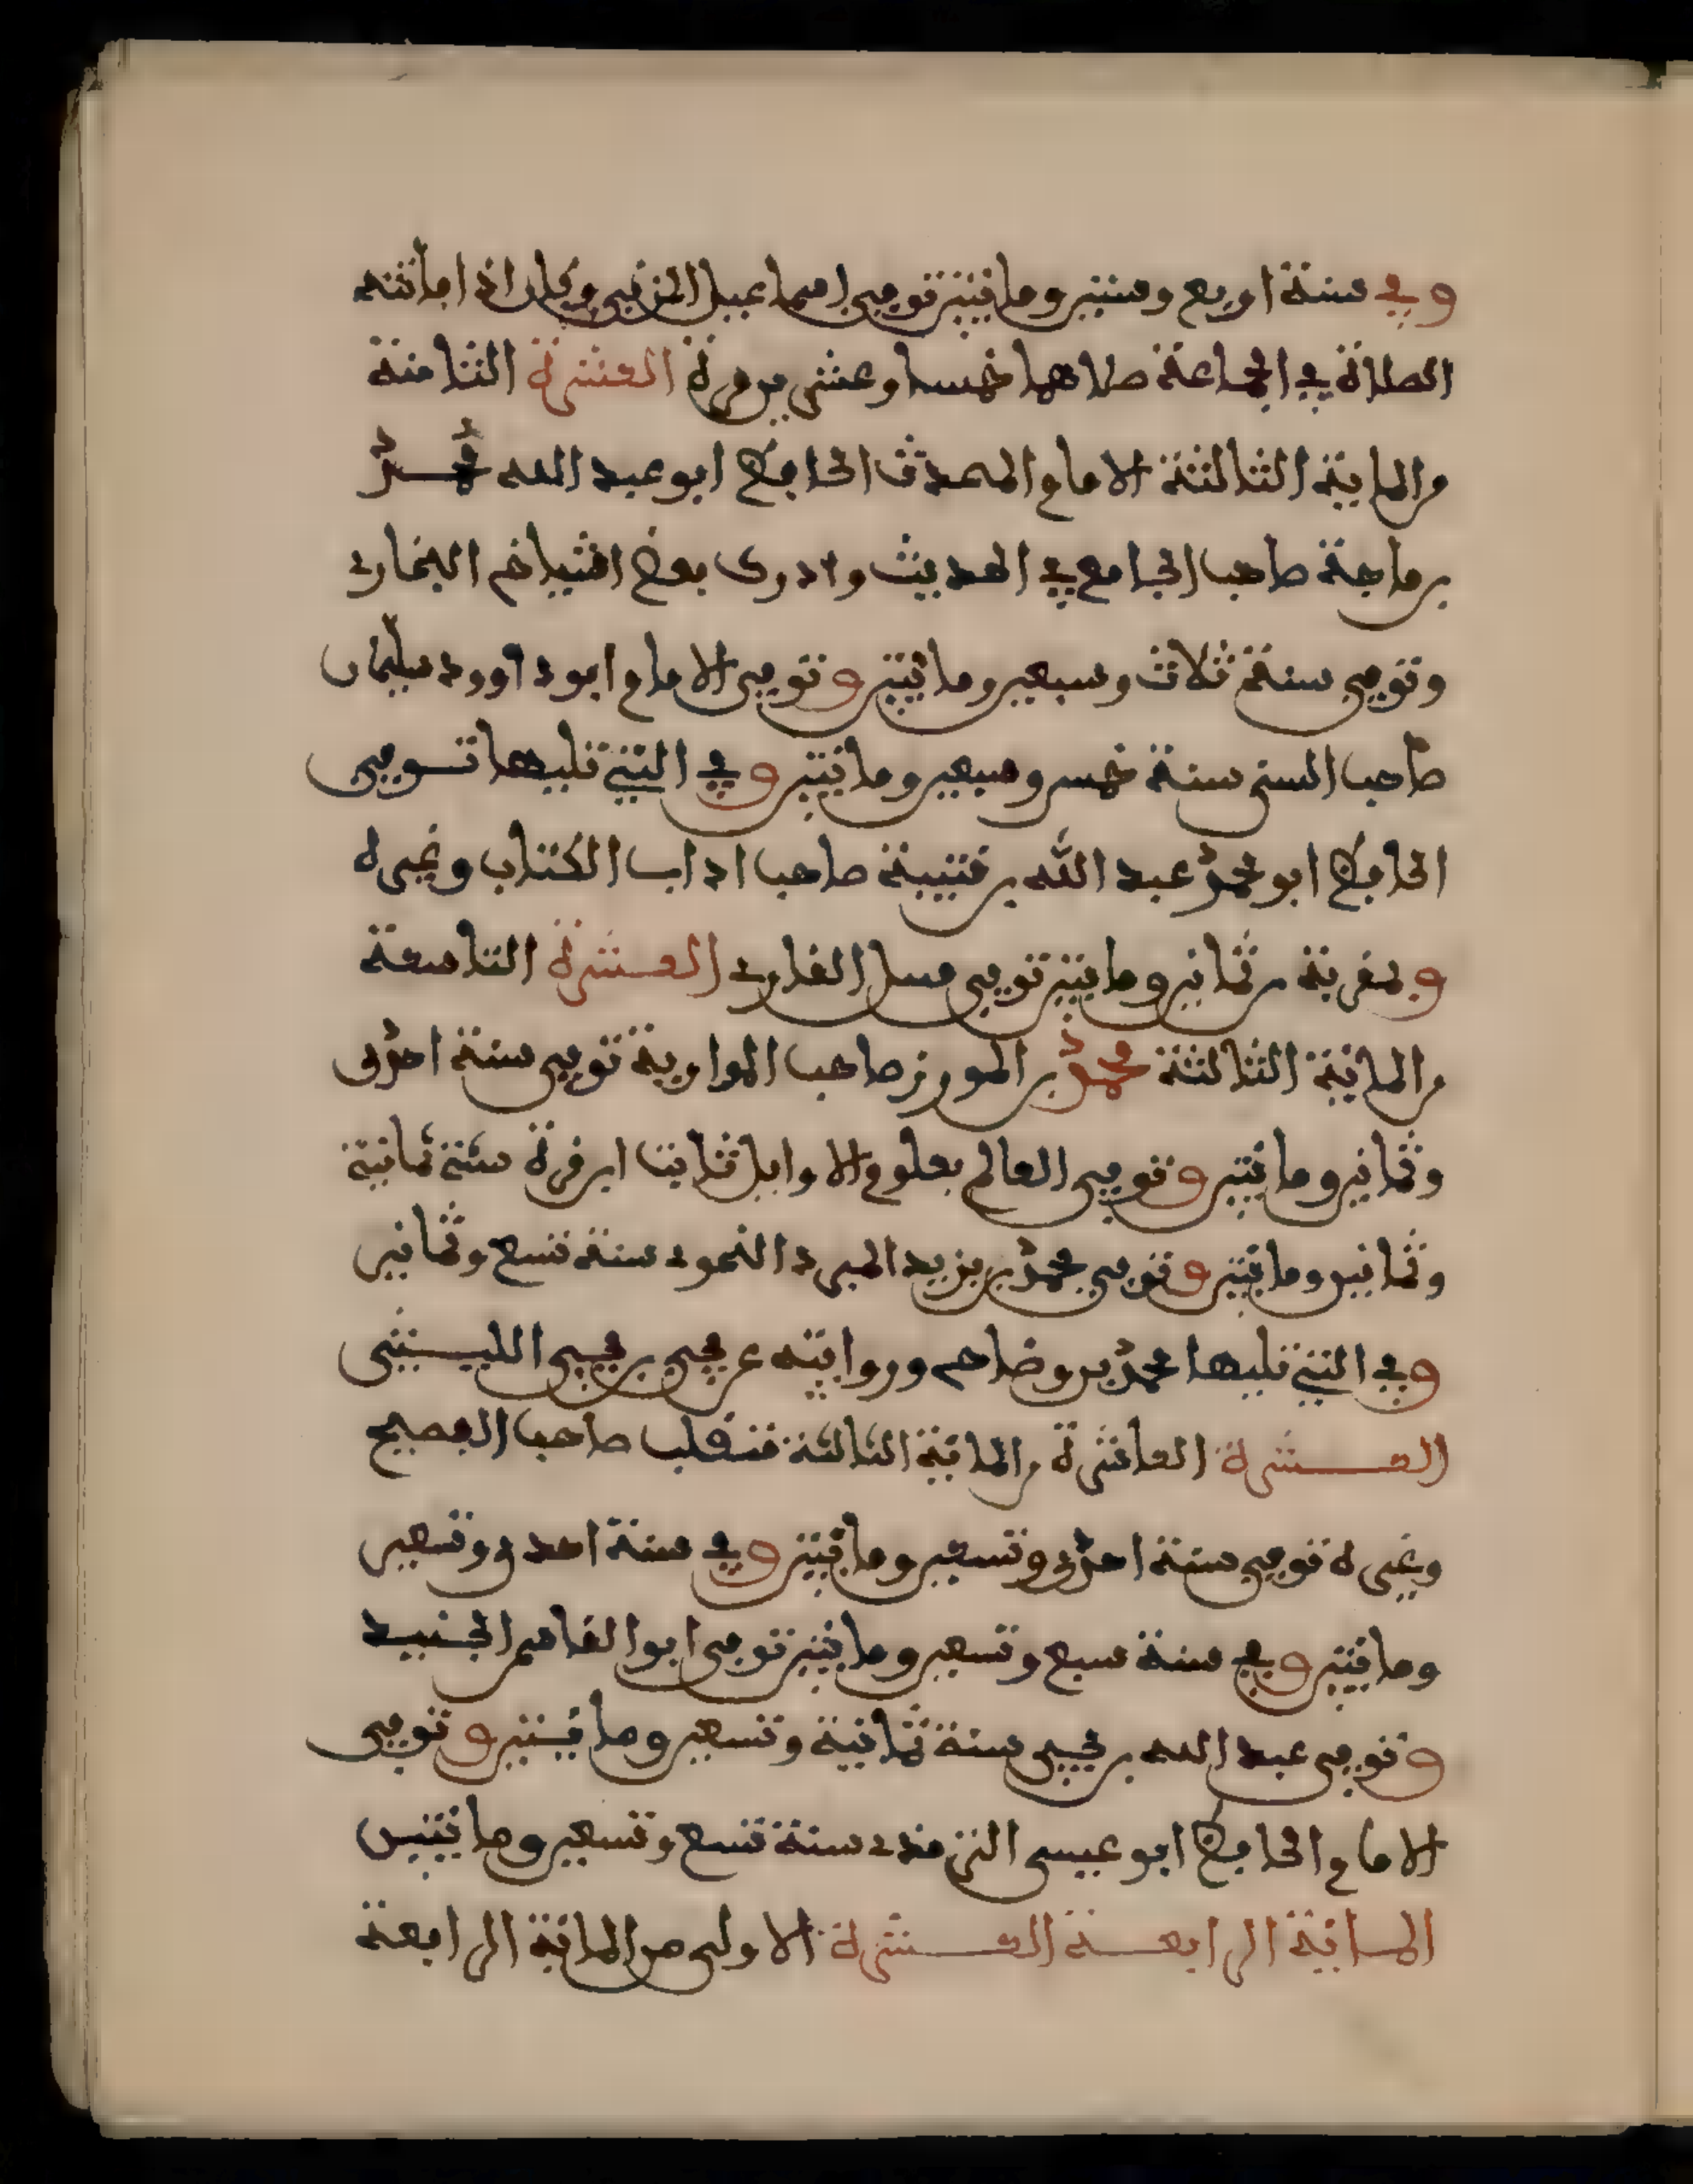 وفي سنة اربع وستين ومايتين توفي اسماعيل المزني وكان اذا فاتته
الصلاة في الجماعة صلاها خمسا وعشرين مرة العشرة الثامنة
من الماية الثالثة الامام المحدث الحافظ ابو عبد الله محمد
بن ماجة صاحب الجامع في الحديث وادرك بعض اشياخ البخاري
وتوفي سنة ثلاث وسبعين ومايتين وتوفي الامام ابو داوود سليمان
صاحب السنن سنة خمس وسبعين ومايتين وفي التي تليها توفي
الحافظ ابو محمد عبد الله بن قتيبة صاحب اداب الكتاب وغيره
وبمقربة من ثمانين ومايتين توفي سهل القاري العشرة التاسعة
من الماية الثالثة محمد بن المورز صاحب الموازية توفي سنة احدى
وثمانين ومايتين وتوفي العالم بعلوم الاوايل ثابت ابن قرة سنة ثمانية
وثمانين ومايتين وتوفي محمد بن يزيد المبرد النحوي سنة تسع وثمانين
وفي التي تليها محمد بن وضاح وروايته عن يحيى بن يحيى الليثي
العشرة العاشرة من الماية الثالثة ثعلب صاحب الفصيح
وغيره توفي سنة احدى وتسعين ومايتين وفي سنة احدى وتسعين
ومايتين وفي سنة سبع وتسعين ومايتين توفي ابو القاسم الجنيد
وتوفي عبد الله بن يحيى سنة ثمانية وتسعين ومايتين وتوفي
الامام الحافظ ابو عيسى الترمذي سنة تسع وتسعين ومايتين
الماية الرابعة العشرة الاولى من الماية الرابعة